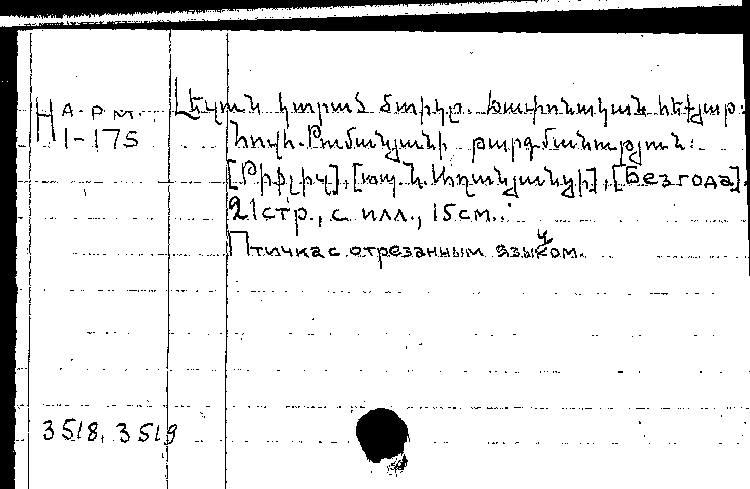 А-Р-М.
Н 1-175
Լեզուն կտրած ծտիկը. Խափոնական հեքյաթ.
Հովհ. Թումանյանի թարգմանություն:
[Թիֆլիս], [տպ. Ն. Աղանյանցի], [Без года].
21 стр., с илл., 15 см.:
Птичка с отрезанным языком.
3518, 3519